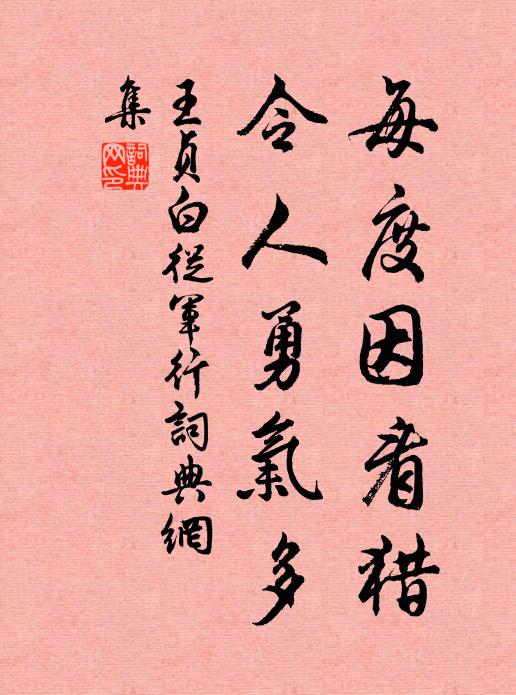 每度因看猎
令人勇氣多
王貞白從軍行詞典網
集
詞典
网印